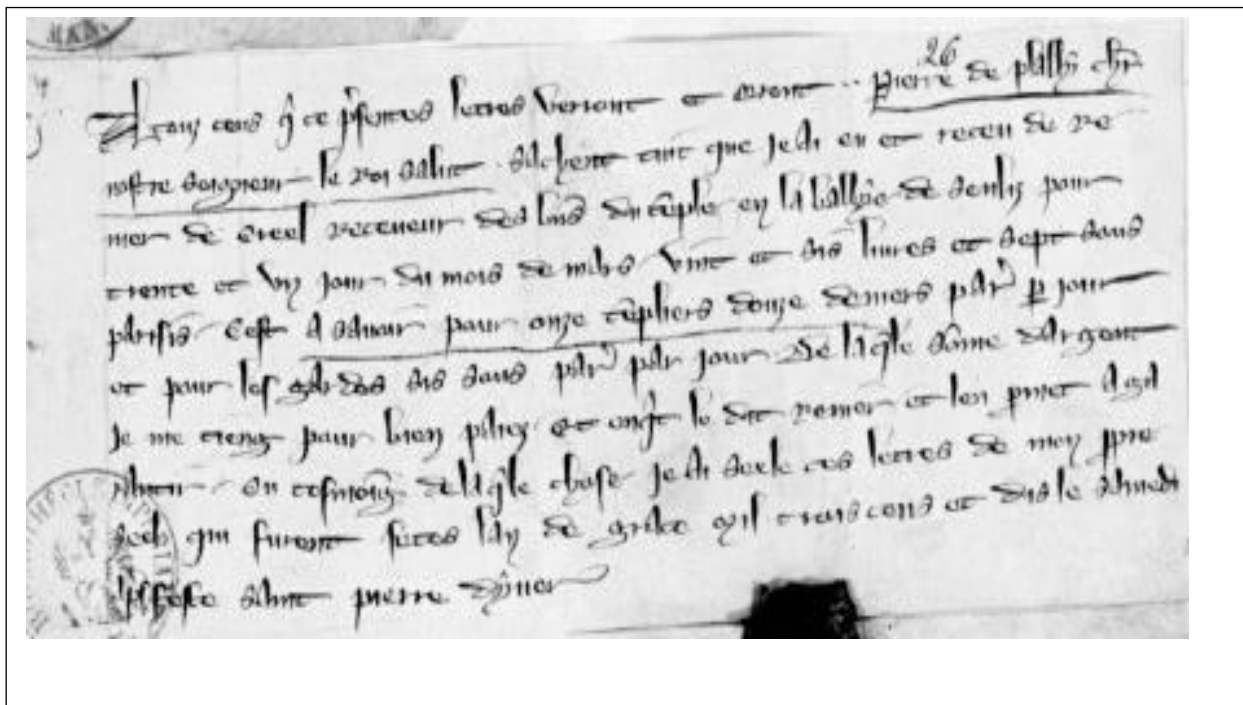 26
A touz ceus q̃ ce p̃sentes letres verront et orront .. pierre de plashĩ chr̃
nostre seigneur le roi salut. sachent tuit que Je ai eu et receu de re
nier de creel receueur des biẽs du tẽple en la ballie de senliz pour
trente et un jour du mois de mars vint et sis liures et sept sous
parisis Cest a sauoir pour onze tẽpliers douze deniers par̃ p jour
et pour les gardes sis sous par̃ par jour De laq̃le sõme dargent
Je me tieng pour bien paiez et le dit renier et len
En tesmoing de laq̃le chose Je ai seele ces letres de mon ppre
seel qui furent fetes lan de grace mil trois cens et dis le samedi
feste saint pierre